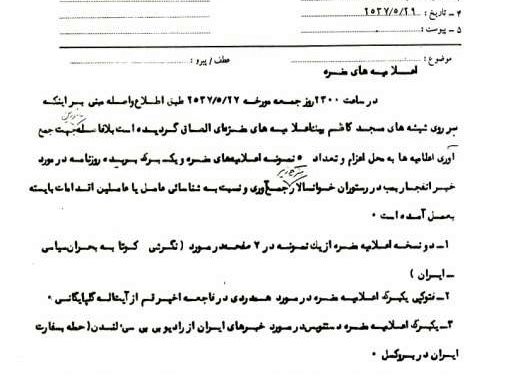 ۴ـ تاریخ : ۲۵۳۷/۵/۲۹
۵ ـ پیوست :
موضوع :
عطف / پیرو :
اعلامیه های مضره
در ساعت ۲۳۰۰ روز جمعه مورخه ۲۵۳۷/۵/۲۷ طبق اطلاع واصله مبنی بر اینکه
بر روی شیشه های مسجد کاظم بیت اعلامیه های مضره‌ای الصاق گردیده است بلافاصله جهت جمع
آوری اعلامیه ها به محل اعزام و تعداد ۵ نمونه اعلامیه‌های مضره و یک برگ بریده روزنامه در مورد
خبر انفجار بمب در رستوران خوانسالار جمع‌آوری و نسبت به شناسائی عامل یا عاملین اقدامات بایسته
بعمل آمده است .
۱ـ دو نسخه اعلامیه مضره از یک نمونه در ۲ صفحه در مورد ( نگرشی کوتا به بحران سیاسی
ـ ایران )
۲ـ فتوکپی یکبرگ اعلامیه مضره در مورد همدردی در فاجعه اخیر قم از آیت‌اله گلپایگانی .
۳ـ یکبرگ اعلامیه مضره دستنویس در مورد خبرهای ایران از رادیو بی بی سی لندن ( حمله بسفارت
ایران در بروکسل .